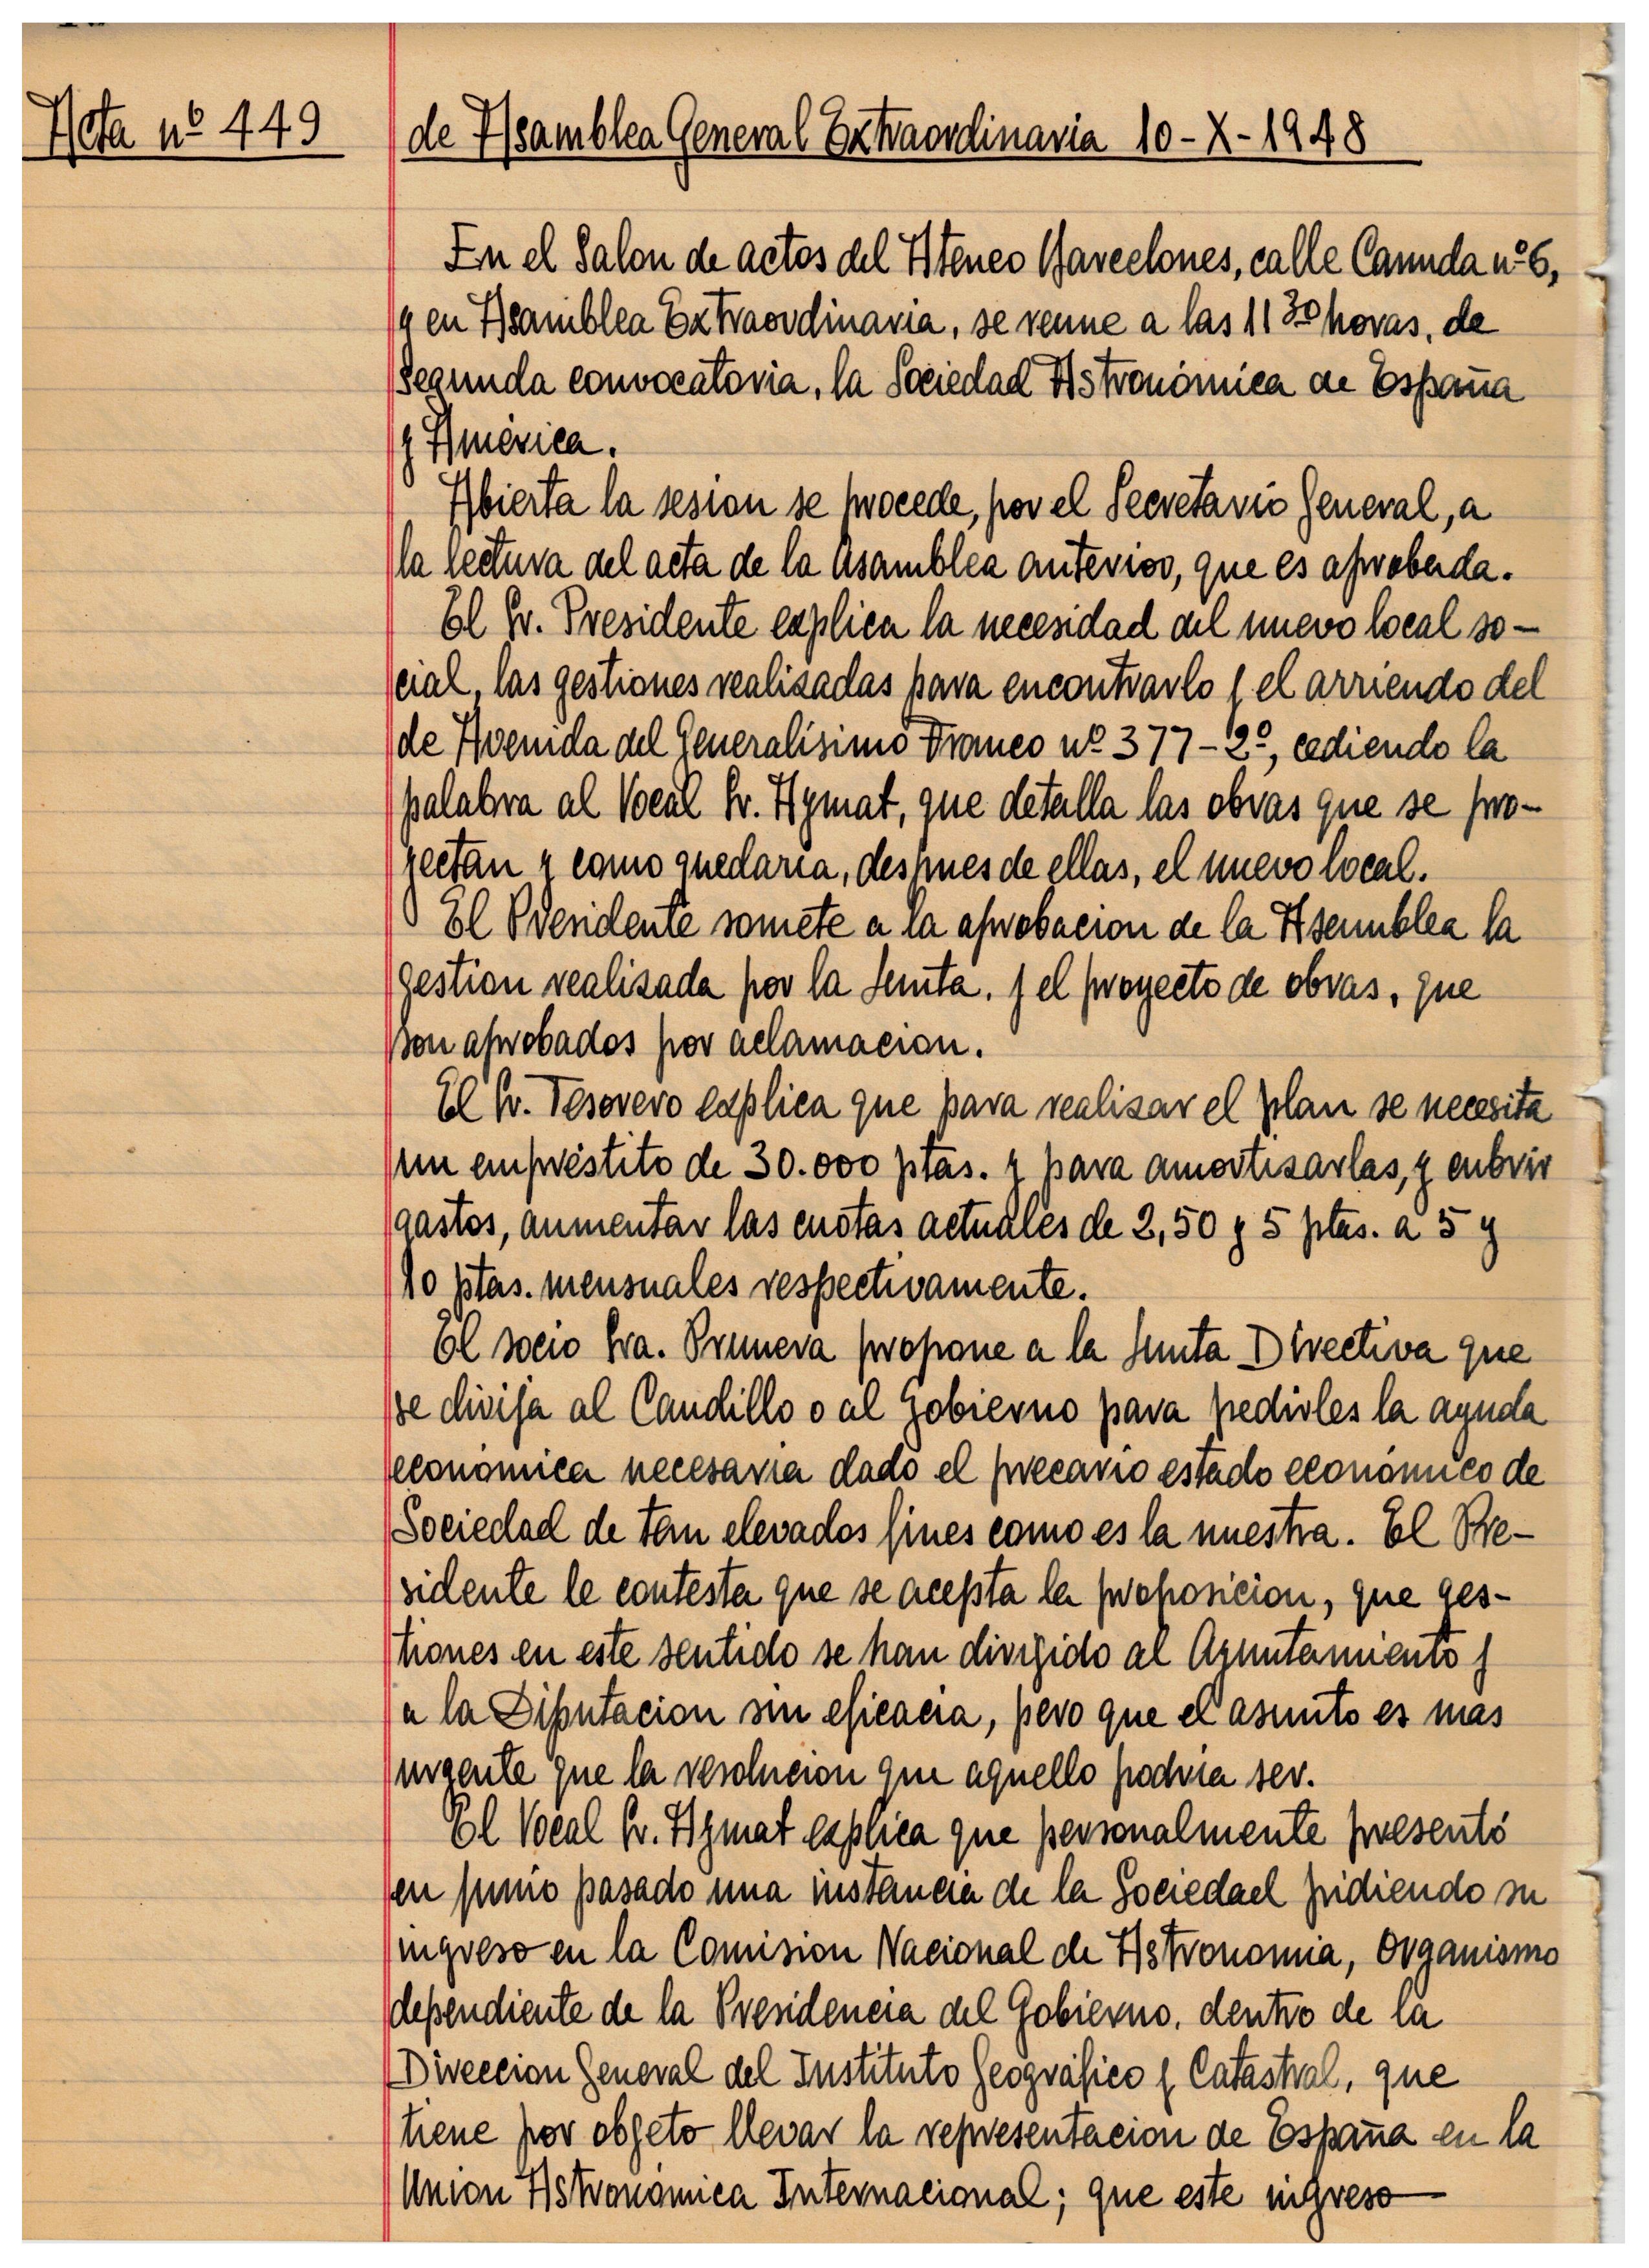 Acta nº 449 de Asamblea General Extraordinaria 10-X-1948
En el Salon de actos del Ateneo Barcelones, calle Canuda nº 6,
y en Asamblea Extraordinaria, se reune a las 11 30 horas, de
segunda convocatoria, la Sociedad Astronómica de España
y América.
Abierta la sesion se procede, por el Secretario General, a
la lectura del acta de la Asamblea anterior, que es aprobada.
El Sr. Presidente explica la necesidad del nuevo local so-
cial, las gestiones realisadas para encontrarlo y el arriendo del
de Avenida del Generalísimo Franco nº 377-2º, cediendo la
palabra al Vocal Sr. Aymat, que detalla las obras que se pro-
yectan y como quedaria, despues de ellas, el nuevo local.
El Presidente somete a la aprobacion de la Asamblea la
gestion realisada por la Junta, y el proyecto de obras, que
son aprobados por aclamacion.
El Sr. Tesorero explica que para realisar el plan se necesita
un empréstito de 30.000 ptas. y para amortisarlas, y cubrir
gastos, aumentar las cuotas actuales de 2,50 y 5 ptas. a 5 y
10 ptas. mensuales respectivamente.
El socio Sra. Prunera propone a la Junta Directiva que
se dirija al Caudillo o al Gobierno para pedirles la ayuda
económica necesaria dado el precario estado económico de
Sociedad de tan elevados fines como es la nuestra. El Pre-
sidente le contesta que se acepta la proposicion, que ges-
tiones en este sentido se han dirigido al Ayuntamiento y
a la Diputacion sin eficacia, pero que el asunto es mas
urgente que la resolucion que aquello podria ser.
El Vocal Sr. Aymat explica que personalmente presentó
en junio pasado una instancia de la Sociedad pidiendo su
ingreso en la Comision Nacional de Astronomia, Organismo
dependiente de la Presidencia del Gobierno, dentro de la
Direccion General del Instituto Geográfico y Catastral, que
tiene por objeto llevar la representacion de España en la
Union Astronómica Internacional; que este ingreso